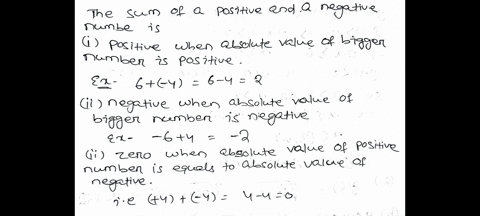 The sum of a positive and a negative
numbe is
(i) positive when absolute value of bigger
number is positive.
Ex- 6+(-4) = 6-4 = 2
(ii) negative when absolute value of
bigger number is negative
Ex- -6+4 = -2
(ii) zero when absolute value of positive
number is equals to absolute value of
negative.
i.e (+4)+(-4) = 4-4=0